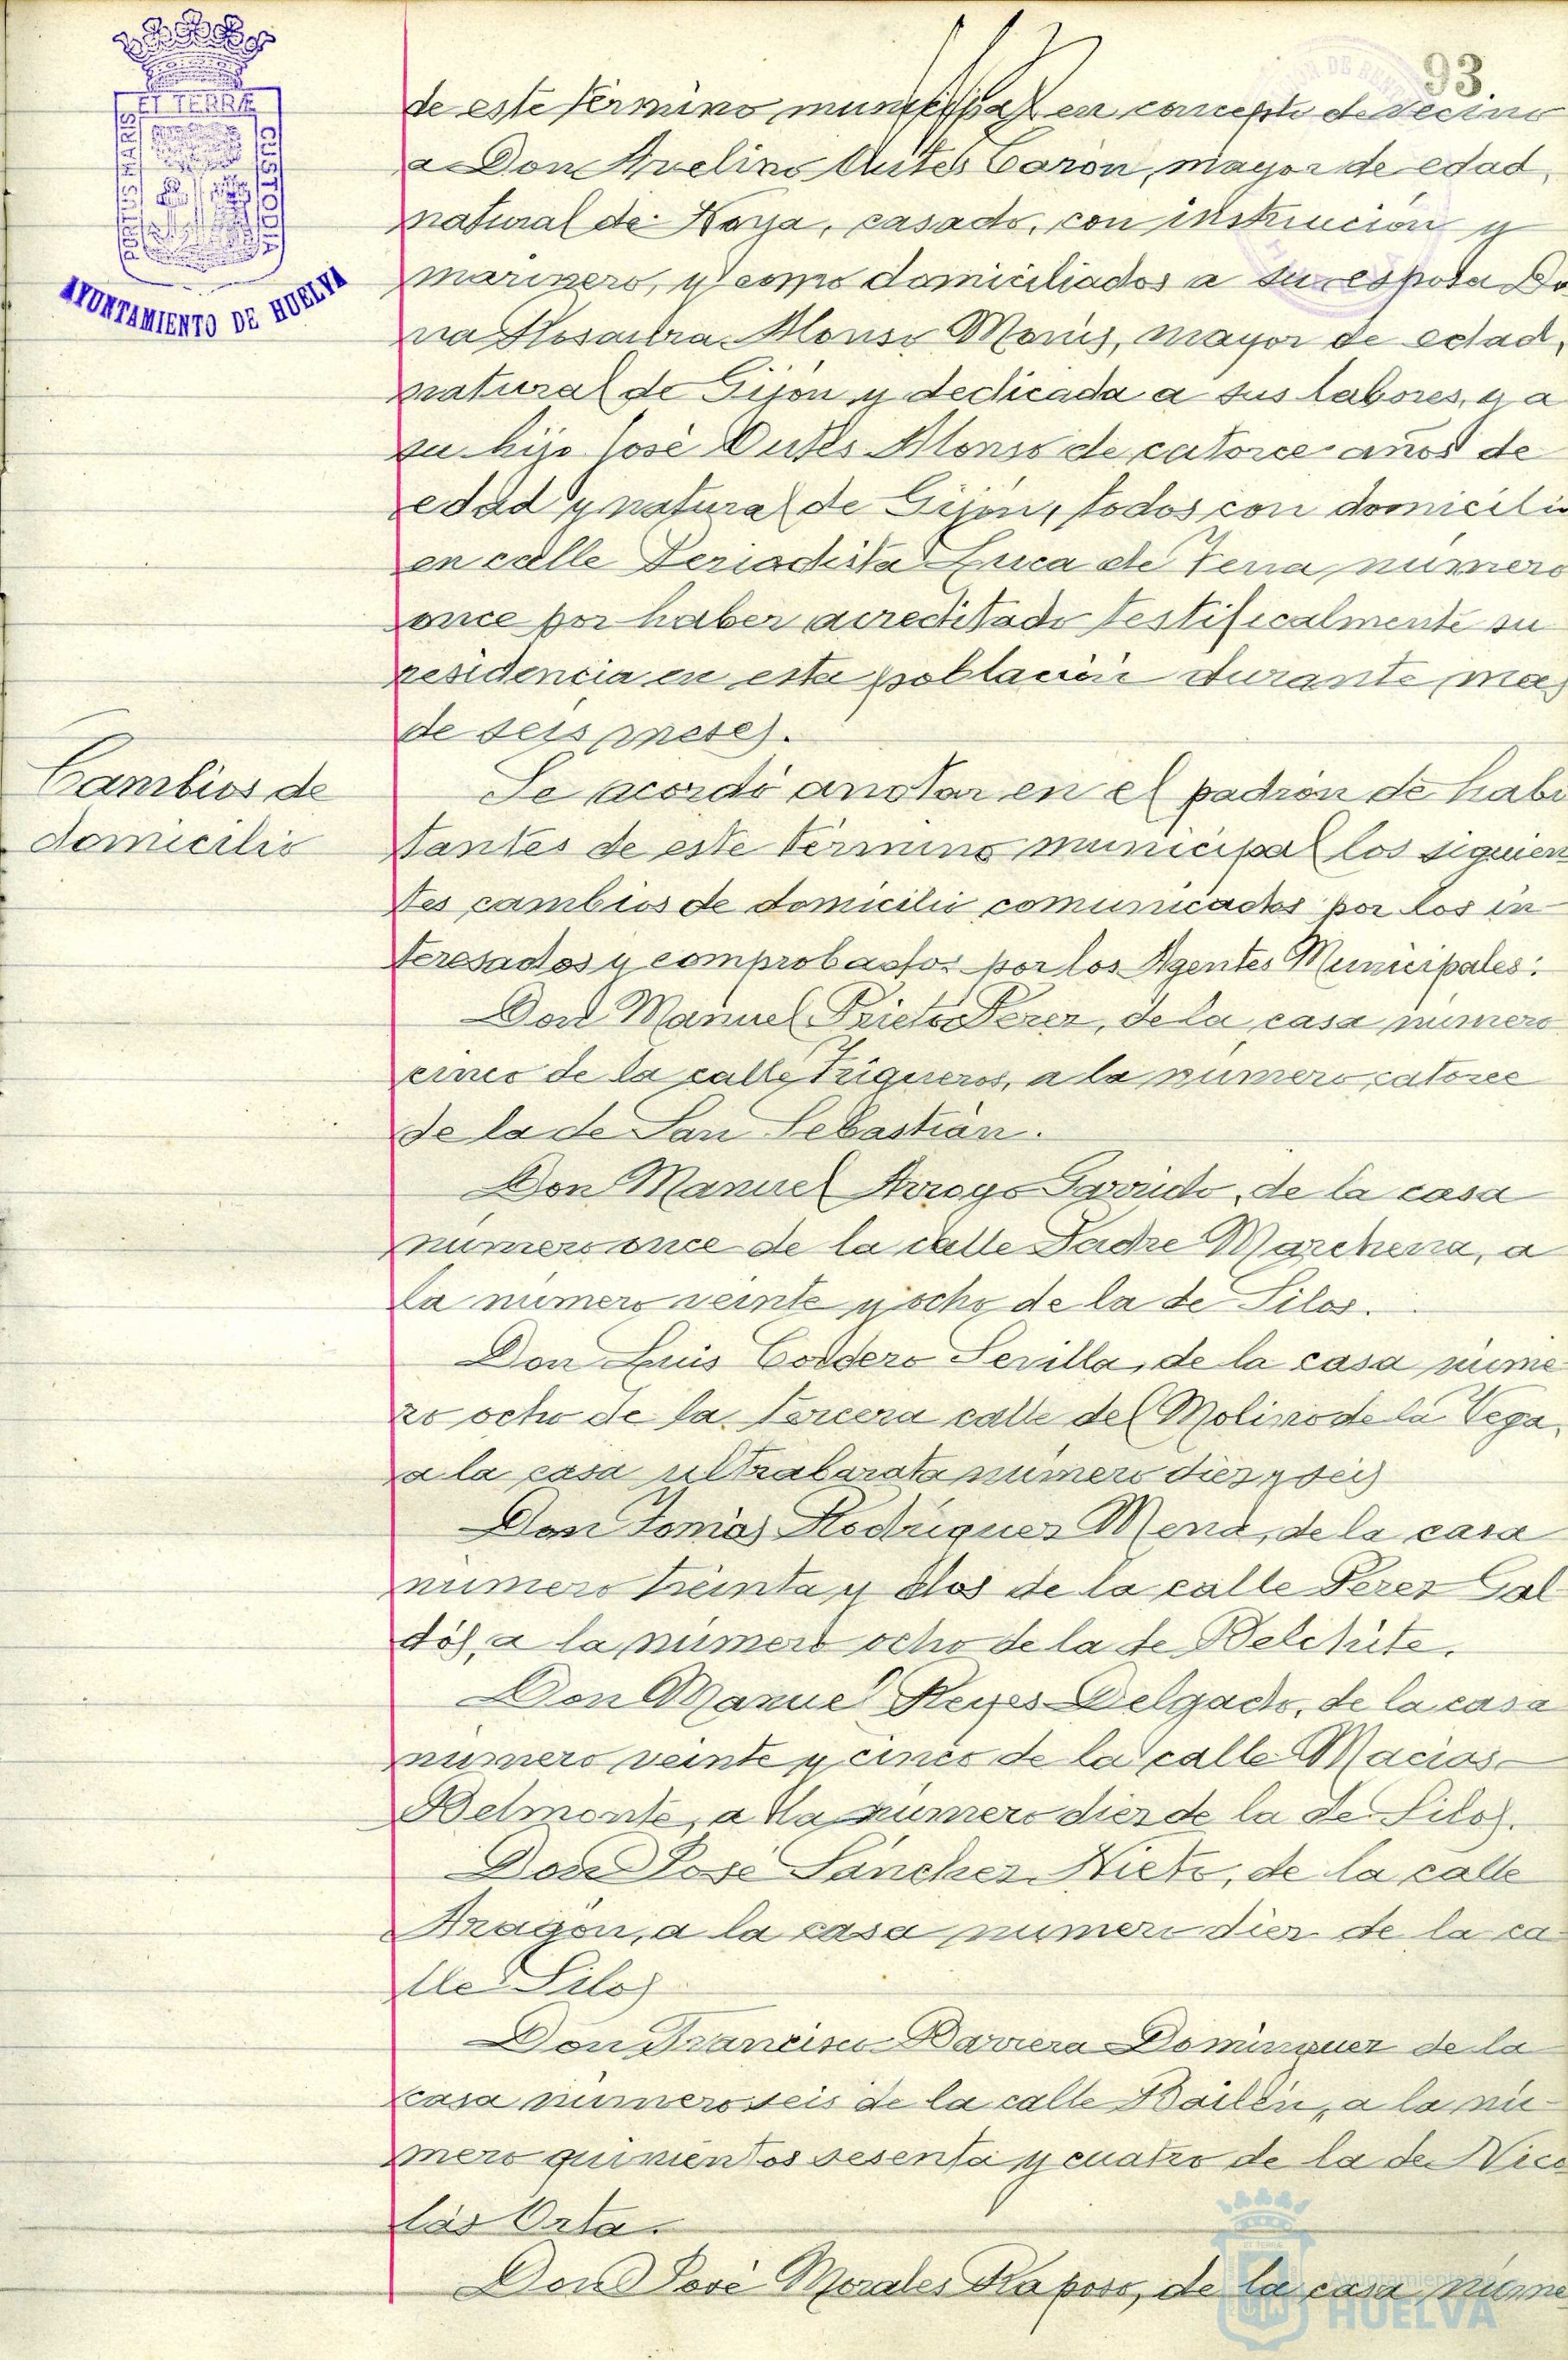 93
ET TERRÆ
PORTUS MARIS
CUSTODIA
AYUNTAMIENTO DE HUELVA
de este término municipal en concepto de vecino
a Don Avelino Caron, mayor de edad,
natural de Noya, casado, con instrucion y
marinero, y como domiciliados a su esposa Do
ña Alonso mayor de edad,
natural de Gijón y dedicada a sus labores, y a
su hijo José Alonso de catorce años de
edad y natural de Gijón, todos con domicilio
en calle Periodista Luca de Tena, número
once por haber acreditado testificalmente su
residencia en esta población durante mas
de seis meses.
Cambios de
domicilio
Se acordó anotar en el padrón de habi
tantes de este término municipal los siguien
tes cambios de domicilio comunicados por los in-
teresados y comprobados por los Agentes Municipales:
Don Manuel Prieto Perez, de la casa número
cinco de la calle Trigueros, a la número catorce
de la de San Sebastián.
Don Manuel Arroyo Garrido, de la casa
número once de la calle Padre Marchena, a
la número veinte y ocho de la de Silos.
Don Luis Cordero Sevilla, de la casa núme
ro ocho de la tercera calle del Molino de la Vega,
a la casa ultrabarata número diez y seis
Don Tomás Rodríguez Mena, de la casa
número treinta y dos de la calle Perez Gal
dós, a la número ocho de la de Belchite.
Don Manuel Reyes Delgado, de la casa
número veinte y cinco de la calle Macias
Belmonte, a la número diez de la de Silos.
Don José Sánchez Nieto, de la calle
Aragón, a la casa número diez de la ca-
lle Silos
Don Francisco Barriera Dominguez de la
casa número seis de la calle Bailén, a la nú-
mero quinientos sesenta y cuatro de la de Nico
lás Orta.
Don José Morales Raposo, de la casa núme
Ayuntamiento de
HUELVA